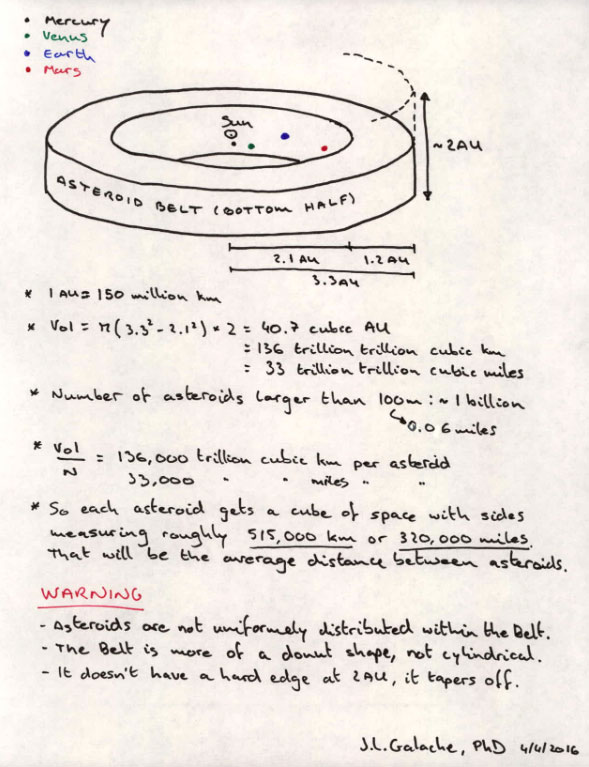 • Mercury
• Venus
• Earth
• Mars
Sun
~2AU
ASTEROID BELT (BOTTOM HALF)
2.1AU
1.2AU
3.3AU
* 1AU = 150 million km
* Vol = π(3.3² - 2.1²) * 2 = 40.7 cubic AU
= 136 trillion trillion cubic km
= 33 trillion trillion cubic miles
* Number of asteroids larger than 100m: ~ 1 billion
↳ 0.06 miles
* Vol/N = 136,000 trillion cubic km per asteroid
33,000 " " miles " "
* So each asteroid gets a cube of space with sides
measuring roughly 515,000 km or 320,000 miles.
That will be the average distance between asteroids.
WARNING
- Asteroids are not uniformely distributed within the Belt.
- The Belt is more of a donut shape, not cylindrical.
- It doesn't have a hard edge at 2AU, it tapers off.
J.L. Galache, PhD 4/4/2016